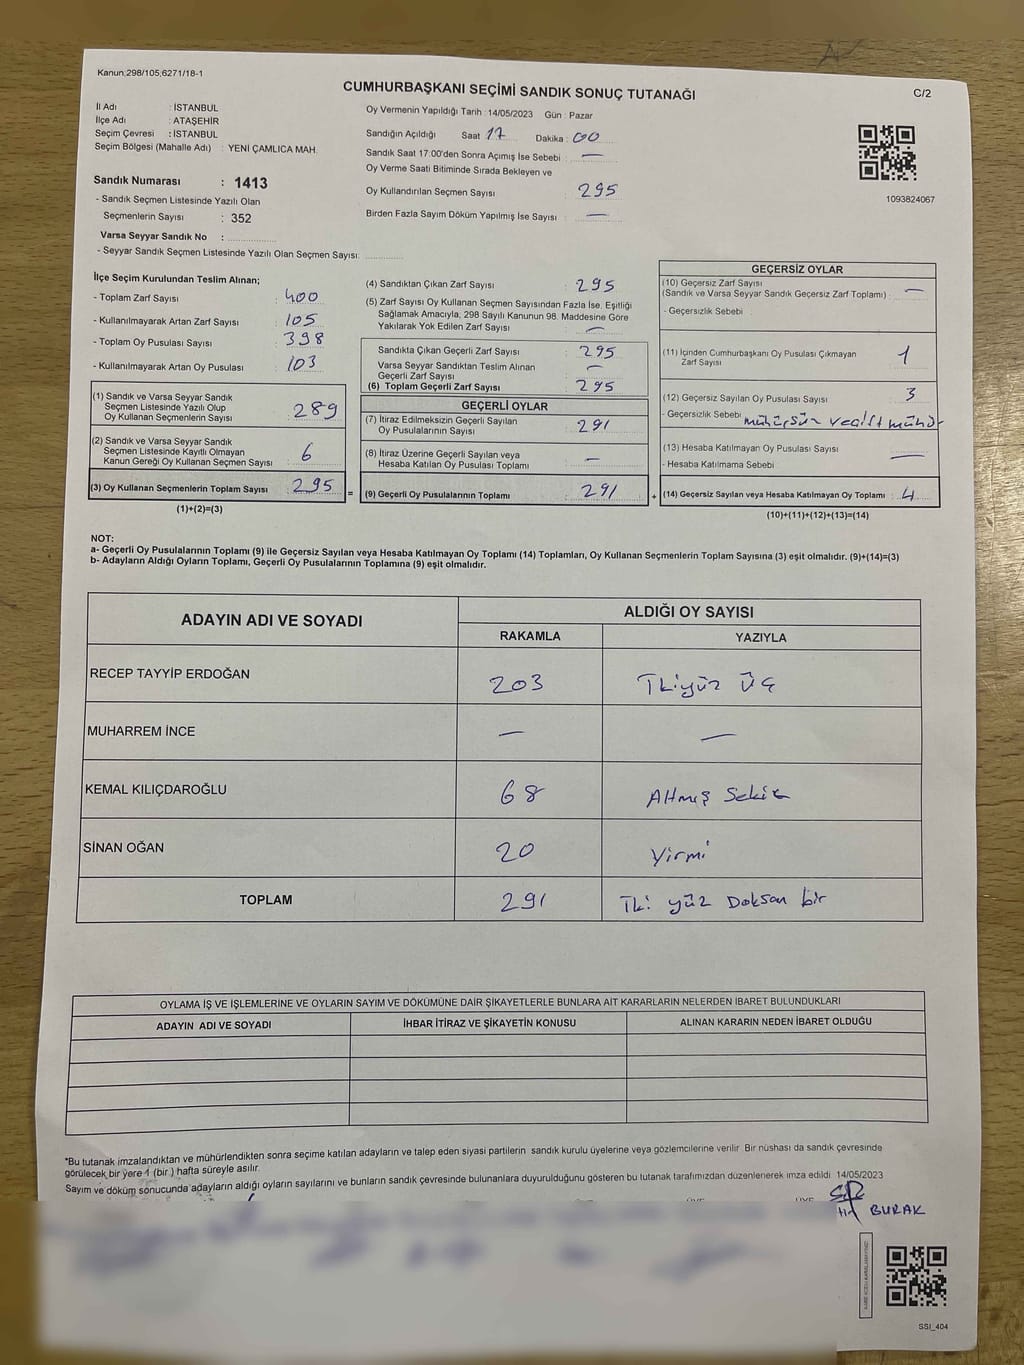 Kanun;298/105;6271/18-1
CUMHURBAŞKANI SEÇİMİ SANDIK SONUÇ TUTANAĞI
C/2
İl Adı : İSTANBUL
İlçe Adı : ATAŞEHİR
Seçim Çevresi : İSTANBUL
Seçim Bölgesi (Mahalle Adı) : YENİ ÇAMLICA MAH.
Sandık Numarası : 1413
- Sandık Seçmen Listesinde Yazılı Olan
Seçmenlerin Sayısı : 352
Varsa Seyyar Sandık No :
- Seyyar Sandık Seçmen Listesinde Yazılı Olan Seçmen Sayısı:
Oy Vermenin Yapıldığı Tarih : 14/05/2023 Gün : Pazar
Sandığın Açıldığı Saat 17 Dakika : 00
Sandık Saat 17:00'den Sonra Açımış İse Sebebi : —
Oy Verme Saati Bitiminde Sırada Bekleyen ve
Oy Kullandırılan Seçmen Sayısı : 295
Birden Fazla Sayım Döküm Yapılmış İse Sayısı : —
1093824067
İlçe Seçim Kurulundan Teslim Alınan;
- Toplam Zarf Sayısı : 400
- Kullanılmayarak Artan Zarf Sayısı : 105
- Toplam Oy Pusulası Sayısı : 398
- Kullanılmayarak Artan Oy Pusulası : 103
(1) Sandık ve Varsa Seyyar Sandık
Seçmen Listesinde Yazılı Olup
Oy Kullanan Seçmenlerin Sayısı : 289
(2) Sandık ve Varsa Seyyar Sandık
Seçmen Listesinde Kayıtlı Olmayan
Kanun Gereği Oy Kullanan Seçmen Sayısı : 6
(3) Oy Kullanan Seçmenlerin Toplam Sayısı : 295
(1)+(2)=(3)
(4) Sandıktan Çıkan Zarf Sayısı : 295
(5) Zarf Sayısı Oy Kullanan Seçmen Sayısından Fazla İse, Eşitliği
Sağlamak Amacıyla, 298 Sayılı Kanunun 98. Maddesine Göre
Yakılarak Yok Edilen Zarf Sayısı : —
Sandıkta Çıkan Geçerli Zarf Sayısı : 295
Varsa Seyyar Sandıktan Teslim Alınan
Geçerli Zarf Sayısı : —
(6) Toplam Geçerli Zarf Sayısı : 295
GEÇERLİ OYLAR
(7) İtiraz Edilmeksizin Geçerli Sayılan
Oy Pusulalarının Sayısı : 291
(8) İtiraz Üzerine Geçerli Sayılan veya
Hesaba Katılan Oy Pusulası Toplamı : —
= (9) Geçerli Oy Pusulalarının Toplamı : 291
GEÇERSİZ OYLAR
(10) Geçersiz Zarf Sayısı
(Sandık ve Varsa Seyyar Sandık Geçersiz Zarf Toplamı) : —
- Geçersizlik Sebebi
(11) İçinden Cumhurbaşkanı Oy Pusulası Çıkmayan
Zarf Sayısı : 1
(12) Geçersiz Sayılan Oy Pusulası Sayısı : 3
- Geçersizlik Sebebi mühürsüz ve çift mühür
(13) Hesaba Katılmayan Oy Pusulası Sayısı : —
- Hesaba Katılmama Sebebi
+ (14) Geçersiz Sayılan veya Hesaba Katılmayan Oy Toplamı : 4
(10)+(11)+(12)+(13)=(14)
NOT:
a- Geçerli Oy Pusulalarının Toplamı (9) ile Geçersiz Sayılan veya Hesaba Katılmayan Oy Toplamı (14) Toplamları, Oy Kullanan Seçmenlerin Toplam Sayısına (3) eşit olmalıdır. (9)+(14)=(3)
b- Adayların Aldığı Oyların Toplamı, Geçerli Oy Pusulalarının Toplamına (9) eşit olmalıdır.
ADAYIN ADI VE SOYADI ALDIĞI OY SAYISI
RAKAMLA YAZIYLA
RECEP TAYYİP ERDOĞAN 203 İkiyüz üç
MUHARREM İNCE — —
KEMAL KILIÇDAROĞLU 68 Altmış Sekiz
SİNAN OĞAN 20 Yirmi
TOPLAM 291 İki yüz Doksan bir
OYLAMA İŞ VE İŞLEMLERİNE VE OYLARIN SAYIM VE DÖKÜMÜNE DAİR ŞİKAYETLERLE BUNLARA AİT KARARLARIN NELERDEN İBARET BULUNDUKLARI
ADAYIN ADI VE SOYADI İHBAR İTİRAZ VE ŞİKAYETİN KONUSU ALINAN KARARIN NEDEN İBARET OLDUĞU
*Bu tutanak imzalandıktan ve mühürlendikten sonra seçime katılan adayların ve talep eden siyasi partilerin sandık kurulu üyelerine veya gözlemcilerine verilir. Bir nüshası da sandık çevresinde
görülecek bir yere 1 (bir ) hafta süreyle asılır.
Sayım ve döküm sonucunda adayların aldığı oyların sayılarını ve bunların sandık çevresinde bulunanlara duyurulduğunu gösteren bu tutanak tarafımızdan düzenlenerek imza edildi. 14/05/2023
BURAK
SSI_404